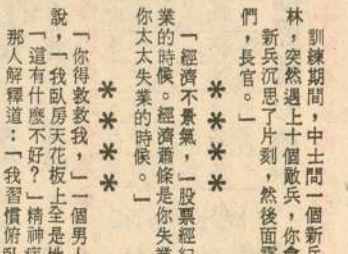 訓練期間,中士問一個新兵
林,突然遇上十個敵兵,你會
新兵沉思了片刻,然後面露
們,長官。」
****
「經濟不景氣,」一股票經紀
業的時候。經濟蕭條是你失業
你太太失業的時候。」
****
「你得救救我,」一個男人
說,「我臥房天花板上全是地
「這有什麼不好?」精神病
那人解釋道:「我習慣俯臥